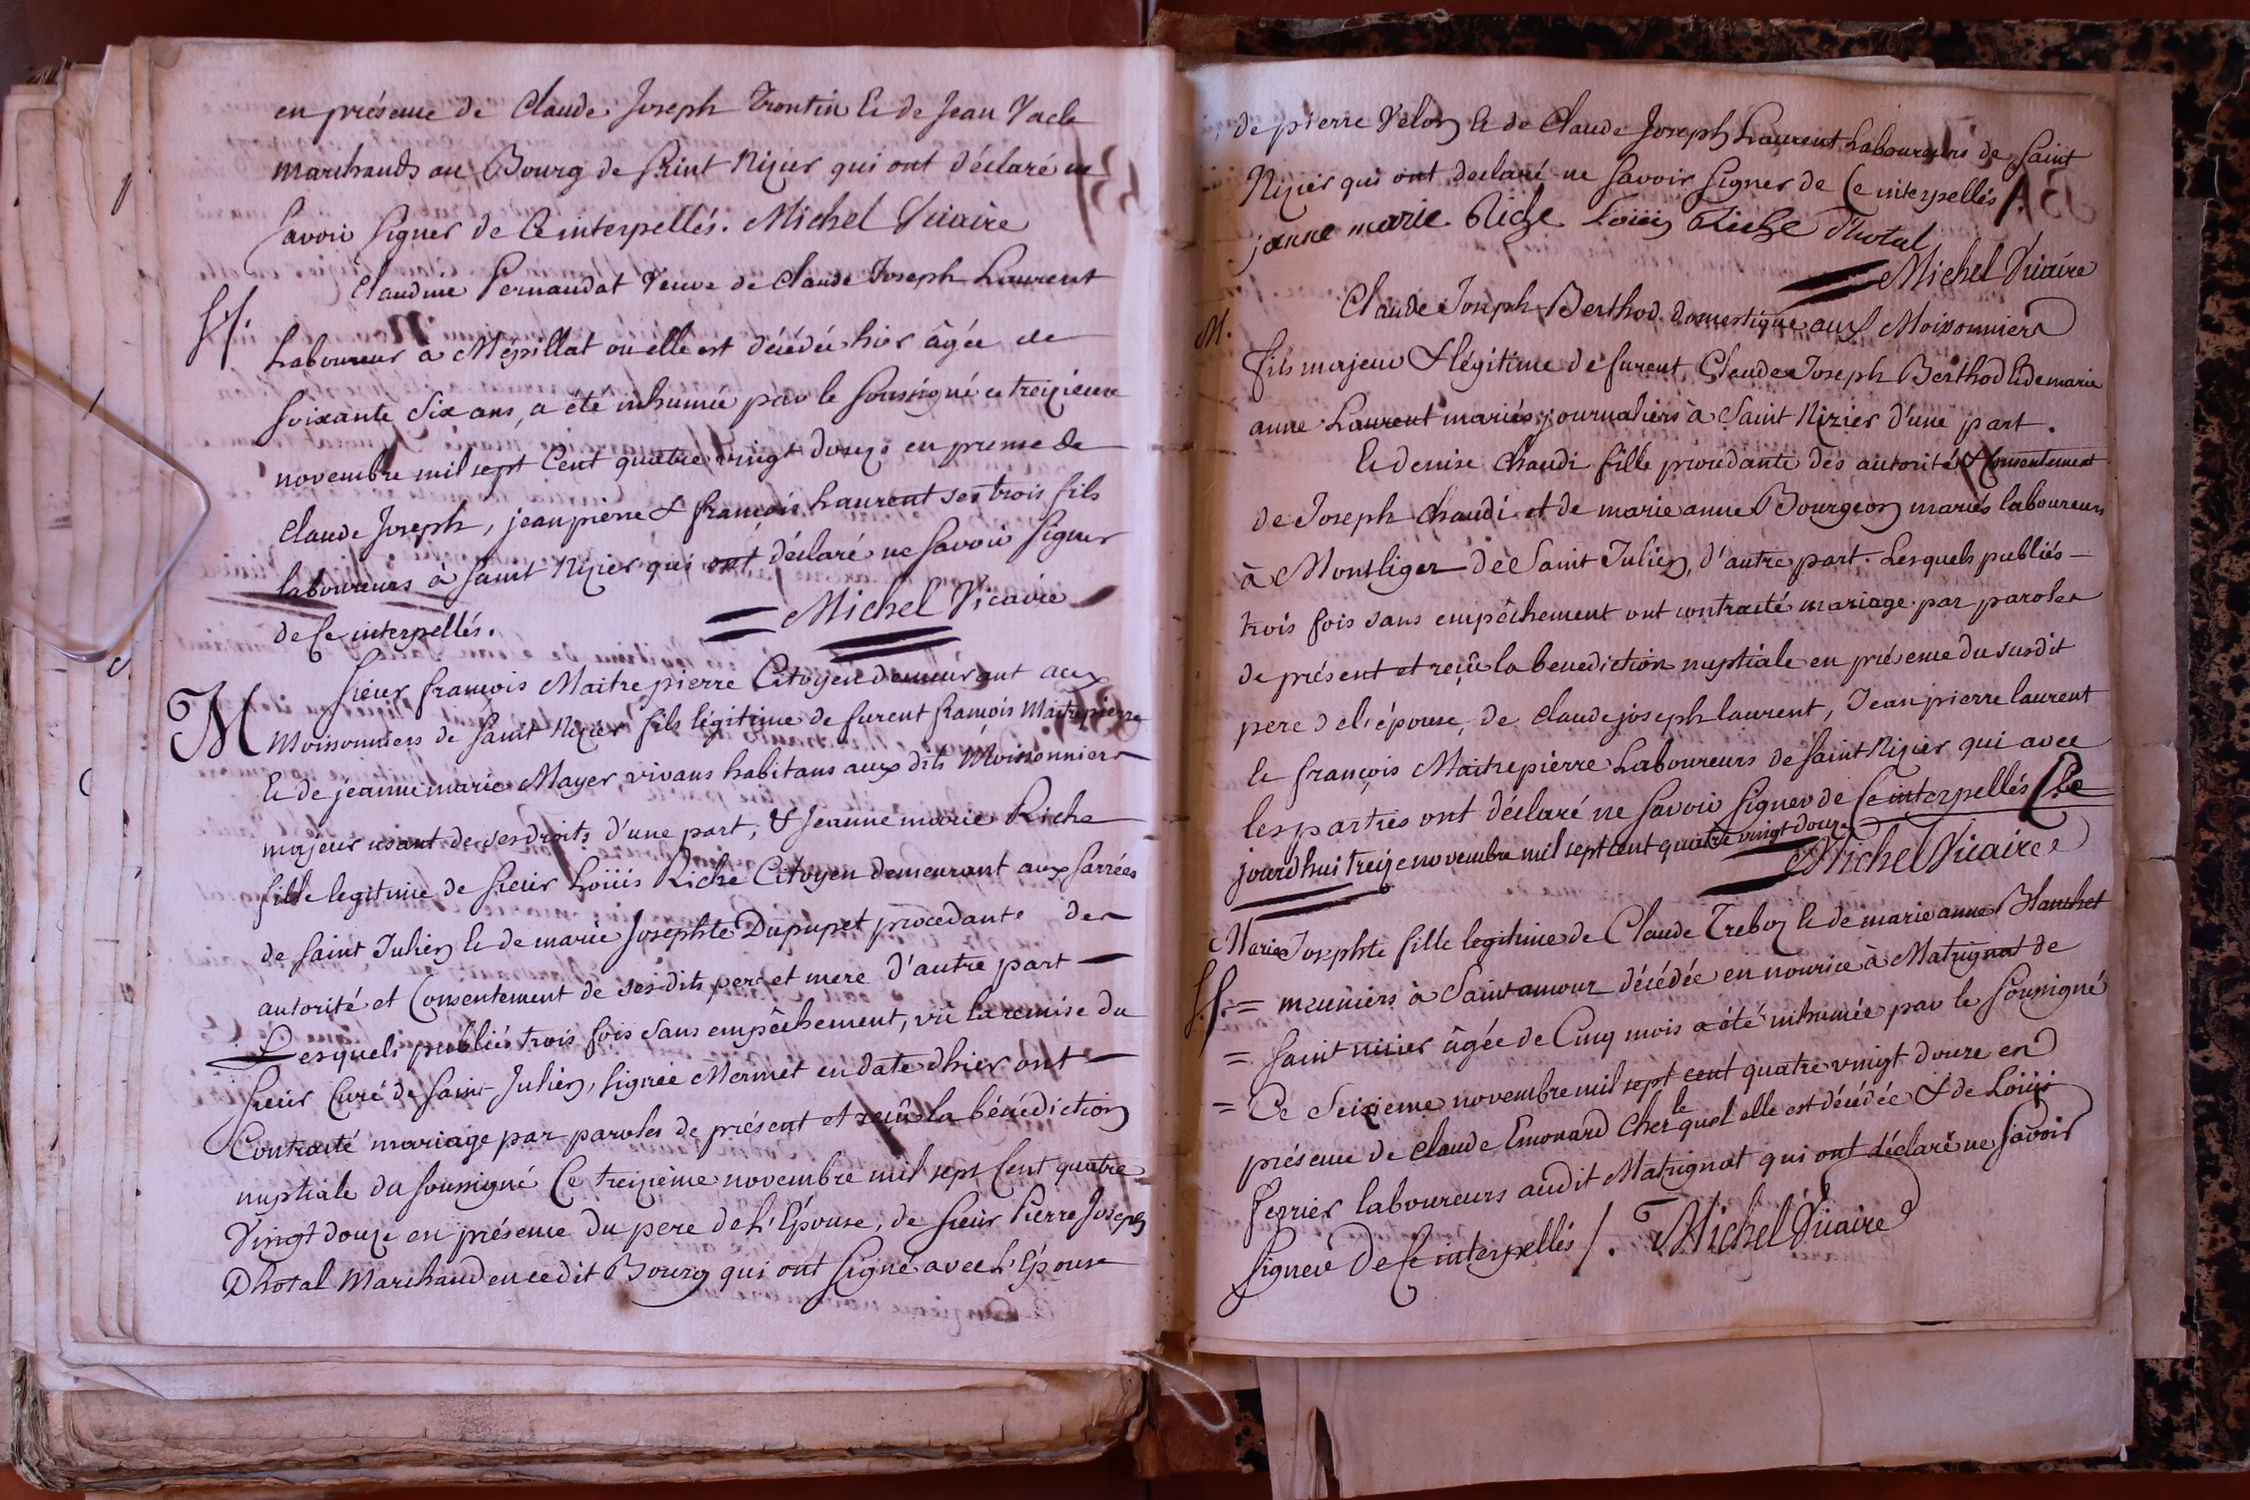 en présence de Claude Joseph Trontin & de Jean Vacle
marchands au Bourg de Saint Nizier qui ont déclaré ne
Savoir Signer de Ce interpellés. Michel Vicaire
Claudine Pernaudat Veuve de Claude Joseph Laurent
S.
Laboureur à Mépillat ou elle est décédée hier âgée de
Soixante Six ans, a été inhumée par le Soussigné ce treizieme
novembre mil sept Cent quatre vingt douze en presence de
Claude Joseph, jean pierre & françois Laurent ses trois fils
laboureurs à Saint Nizier qui ont déclaré ne Savoir Signer
de Ce interpellés.
Michel Vicaire
M
Sieur françois Maitrepierre Citoyen demeurant aux
Moissonniers de Saint Nizier fils légitime de furent françois Maitrepierre
& de jeanne marie Mayer, vivans habitans aux dits Moissonniers
majeur usant de ses droits d'une part, & Jeanne marie Riche
fille legitime de Sieur Loüis Riche Citoyen demeurant aux Sarrées
de Saint Julien & de marie Josephte Dupupet procedante des
autorité et Consentement de ses dits pere et mere d'autre part
Lesquels publiés trois fois sans empêchement, vu la remise du
Sieur Curé de Saint Julien, Signée Mermet en date d'hier ont
Contracté mariage par paroles de présent et reçû la bénédiction
nuptiale du Soussigné Ce treizième novembre mil sept Cent quatre
Vingt douze en présence du pere de L'Epouse, de Sieur Pierre Joseph
Dhotal Marchand en cedit Bourg qui ont Signé avec L'Epouse
de pierre Velon & de Claude Joseph Laurent Laboureurs de Saint
Nizier qui ont declaré ne Savoir Signer de Ce interpellés
janne marie Riche Loüis Riche Dhotal
Michel Vicaire
M.
Claude Joseph Berthod domestique aux Moissonniers
fils majeur & légitime de furent Claude Joseph Berthod & de marie
anne Laurent mariés journaliers à Saint Nizier d'une part.
& denise Chaudi fille procedante des autorité & Consentement
de Joseph Chaudi et de marie anne Bourgeon mariés laboureurs
à Montliger de Saint Julien, d'autre part. Lesquels publiés
trois fois sans empêchement ont contracté mariage par paroles
de présent et reçû la benediction nuptiale en présence du susdit
pere de l'épouse, de Claude joseph laurent, Jean pierre laurent
& françois Maitrepierre Laboureurs de Saint Nizier qui avec
les parties ont déclaré ne Savoir Signer de Ce interpellés Ce
jourdhui treize novembre mil sept cent quatre vingt douze
Michel Vicaire
Marie Josephte fille legitime de Claude Treboz & de marie anne Blanchet
S. = meuniers à Saint amour décédée en nourice à Matrignat de
= Saint nizier âgée de Cinq mois a été inhumée par le Soussigné
= Ce Seizieme novembre mil sept cent quatre vingt douze en
présence de Claude Emonard Chez le quel elle est décédée & de Loüis
ferrier laboureurs audit Matrignat qui ont déclaré ne Savoir
Signer de Ce interpellés /. Michel Vicaire